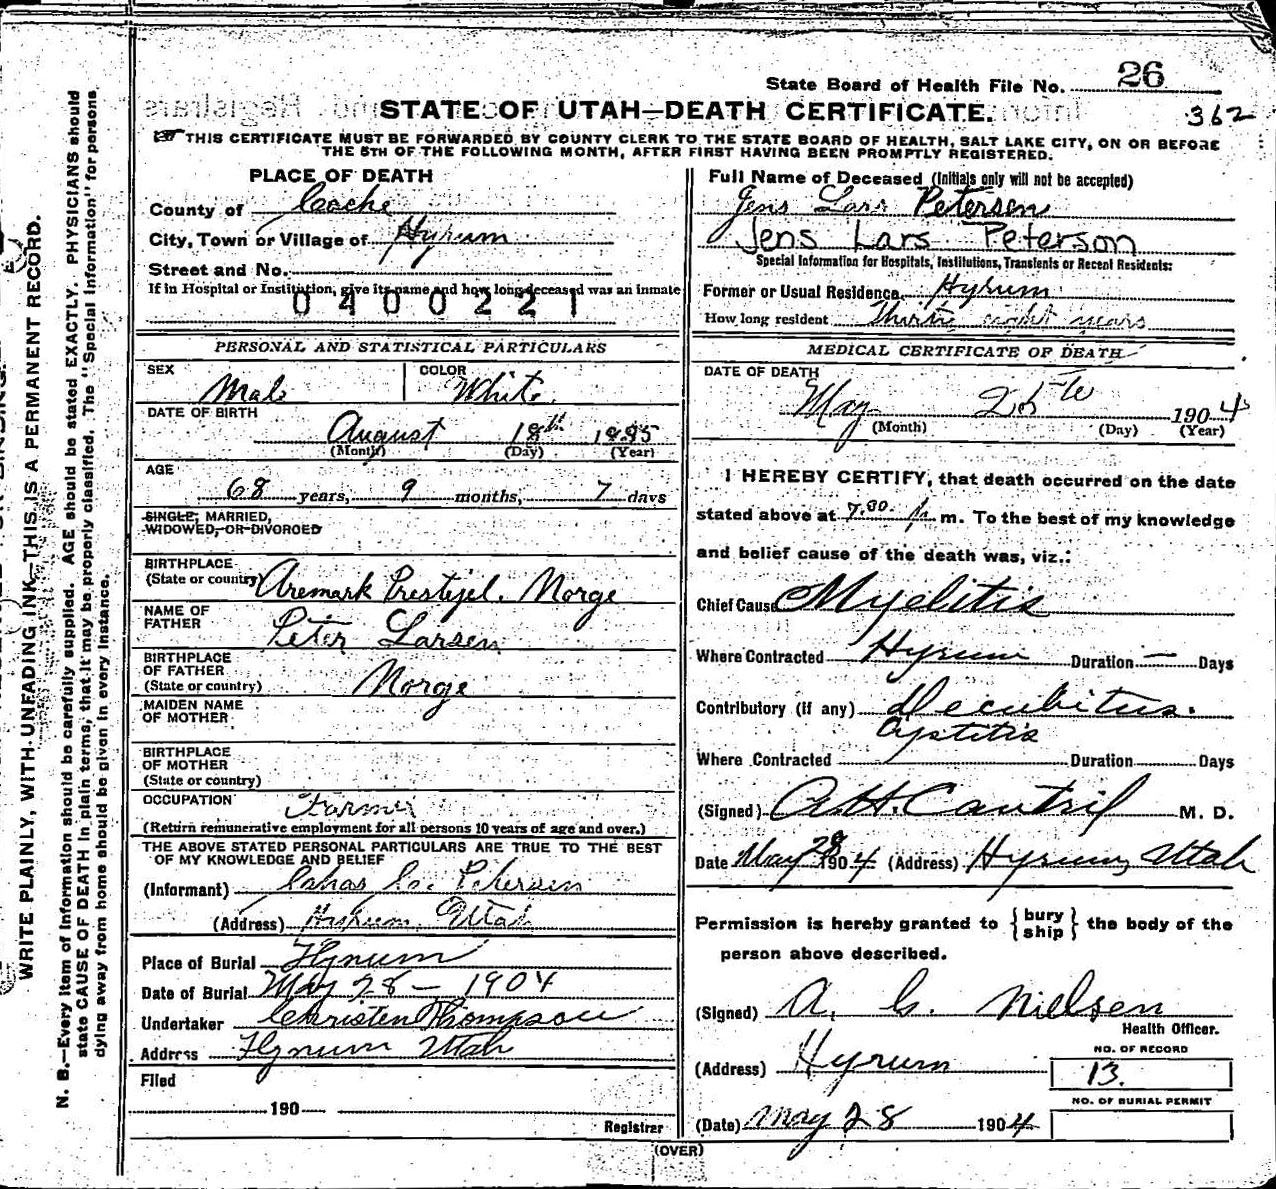 State Board of Health File No. 26
STATE OF UTAH—DEATH CERTIFICATE.
362
THIS CERTIFICATE MUST BE FORWARDED BY COUNTY CLERK TO THE STATE BOARD OF HEALTH, SALT LAKE CITY, ON OR BEFORE
THE 5TH OF THE FOLLOWING MONTH, AFTER FIRST HAVING BEEN PROMPTLY REGISTERED.
WRITE PLAINLY, WITH UNFADING INK—THIS IS A PERMANENT RECORD.
N. B.—Every item of information should be carefully supplied. AGE should be stated EXACTLY. PHYSICIANS should
state CAUSE OF DEATH in plain terms, that it may be properly classified. The "Special Information" for persons
dying away from home should be given in every instance.
PLACE OF DEATH
County of Cache
City, Town or Village of Hyrum
Street and No.
If in Hospital or Institution, give its name and how long deceased was an inmate
0400221
PERSONAL AND STATISTICAL PARTICULARS
SEX Male COLOR White
DATE OF BIRTH
August 18th 1835
(Month) (Day) (Year)
AGE
68 years, 9 months, 7 days
SINGLE, MARRIED,
WIDOWED, OR DIVORCED
BIRTHPLACE
(State or country) Aremark Prestejel. Norge
NAME OF
FATHER Peter Larsen
BIRTHPLACE
OF FATHER
(State or country) Norge
MAIDEN NAME
OF MOTHER
BIRTHPLACE
OF MOTHER
(State or country)
OCCUPATION Farmer
(Return remunerative employment for all persons 10 years of age and over.)
THE ABOVE STATED PERSONAL PARTICULARS ARE TRUE TO THE BEST
OF MY KNOWLEDGE AND BELIEF
(Informant) Petersen
(Address) Hyrum, Utah
Place of Burial Hyrum
Date of Burial May 28 - 1904
Undertaker Christen Thompson
Address Hyrum Utah
Filed
190
Registrar
Full Name of Deceased (Initials only will not be accepted)
Jens Lars Petersen
Jens Lars Peterson
Special Information for Hospitals, Institutions, Transients or Recent Residents:
Former or Usual Residence, Hyrum
How long resident Thirty eight years
MEDICAL CERTIFICATE OF DEATH
DATE OF DEATH
May 25th 1904
(Month) (Day) (Year)
I HEREBY CERTIFY, that death occurred on the date
stated above at 7.30. P. m. To the best of my knowledge
and belief cause of the death was, viz.:
Chief Cause Myelitis
Where Contracted Hyrum Duration — Days
Contributory (if any) Decubitus.
Cystitis
Where Contracted Duration Days
(Signed) A. H. Cantril M. D.
Date May 28 1904 (Address) Hyrum, Utah
Permission is hereby granted to { bury ship } the body of the
person above described.
(Signed) A. C. Nielsen
Health Officer.
(Address) Hyrum
NO. OF RECORD
13.
NO. OF BURIAL PERMIT
(Date) May 28 1904
(OVER)